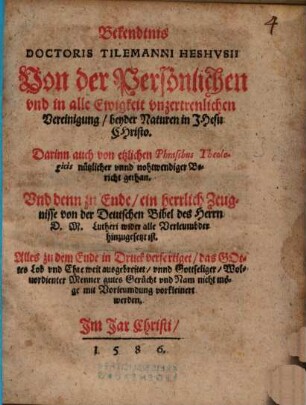 4
Bekendtnis
DOCTORIS TILEMANNI HESHVSII
Von der Persönlichen
vnd in alle Ewigkeit vnzertrenlichen
Vereinigung / beyder Naturen in JHesu
CHristo.
Darinn auch von etzlichen Phrasibus Theolo-
gicis nützlicher vnnd nohtwendiger Be-
richt gethan.
Vnd denn zu Ende / ein herrlich Zeug-
nisse von der Deutschen Bibel des Herrn
D. M. Lutheri wider alle Verleumbder
hinzugesetzt ist.
Alles zu dem Ende in Druck verfertiget / das GOt-
tes Lob vnd Ehre weit ausgebreitet / vnnd Gottseliger / Wol-
uordienter Menner gutes Gerücht vnd Nam nicht mö-
ge mit Verleumdung vorkleinert
werden.
Im Jar Christi /
1 5 8 6.